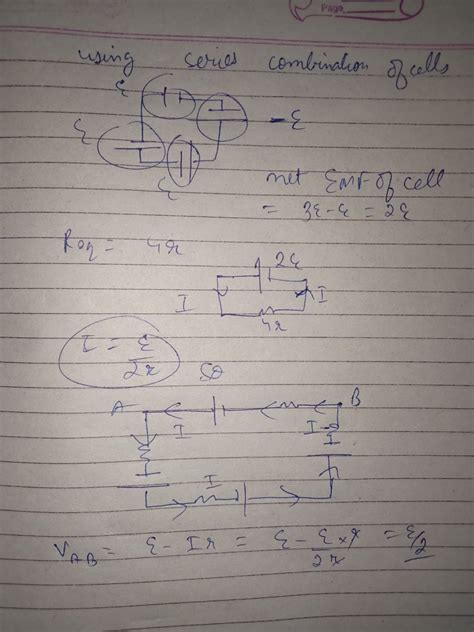 Page
using series combination of cells
ε
ε
-ε
ε
net EMF of cell
= 3ε-ε = 2ε
Req = 4r
2ε
I
I
4r
I = ε/2r
SO
A
B
I
I
I
V_AB = ε - Ir = ε - ε/2r × r = ε/2